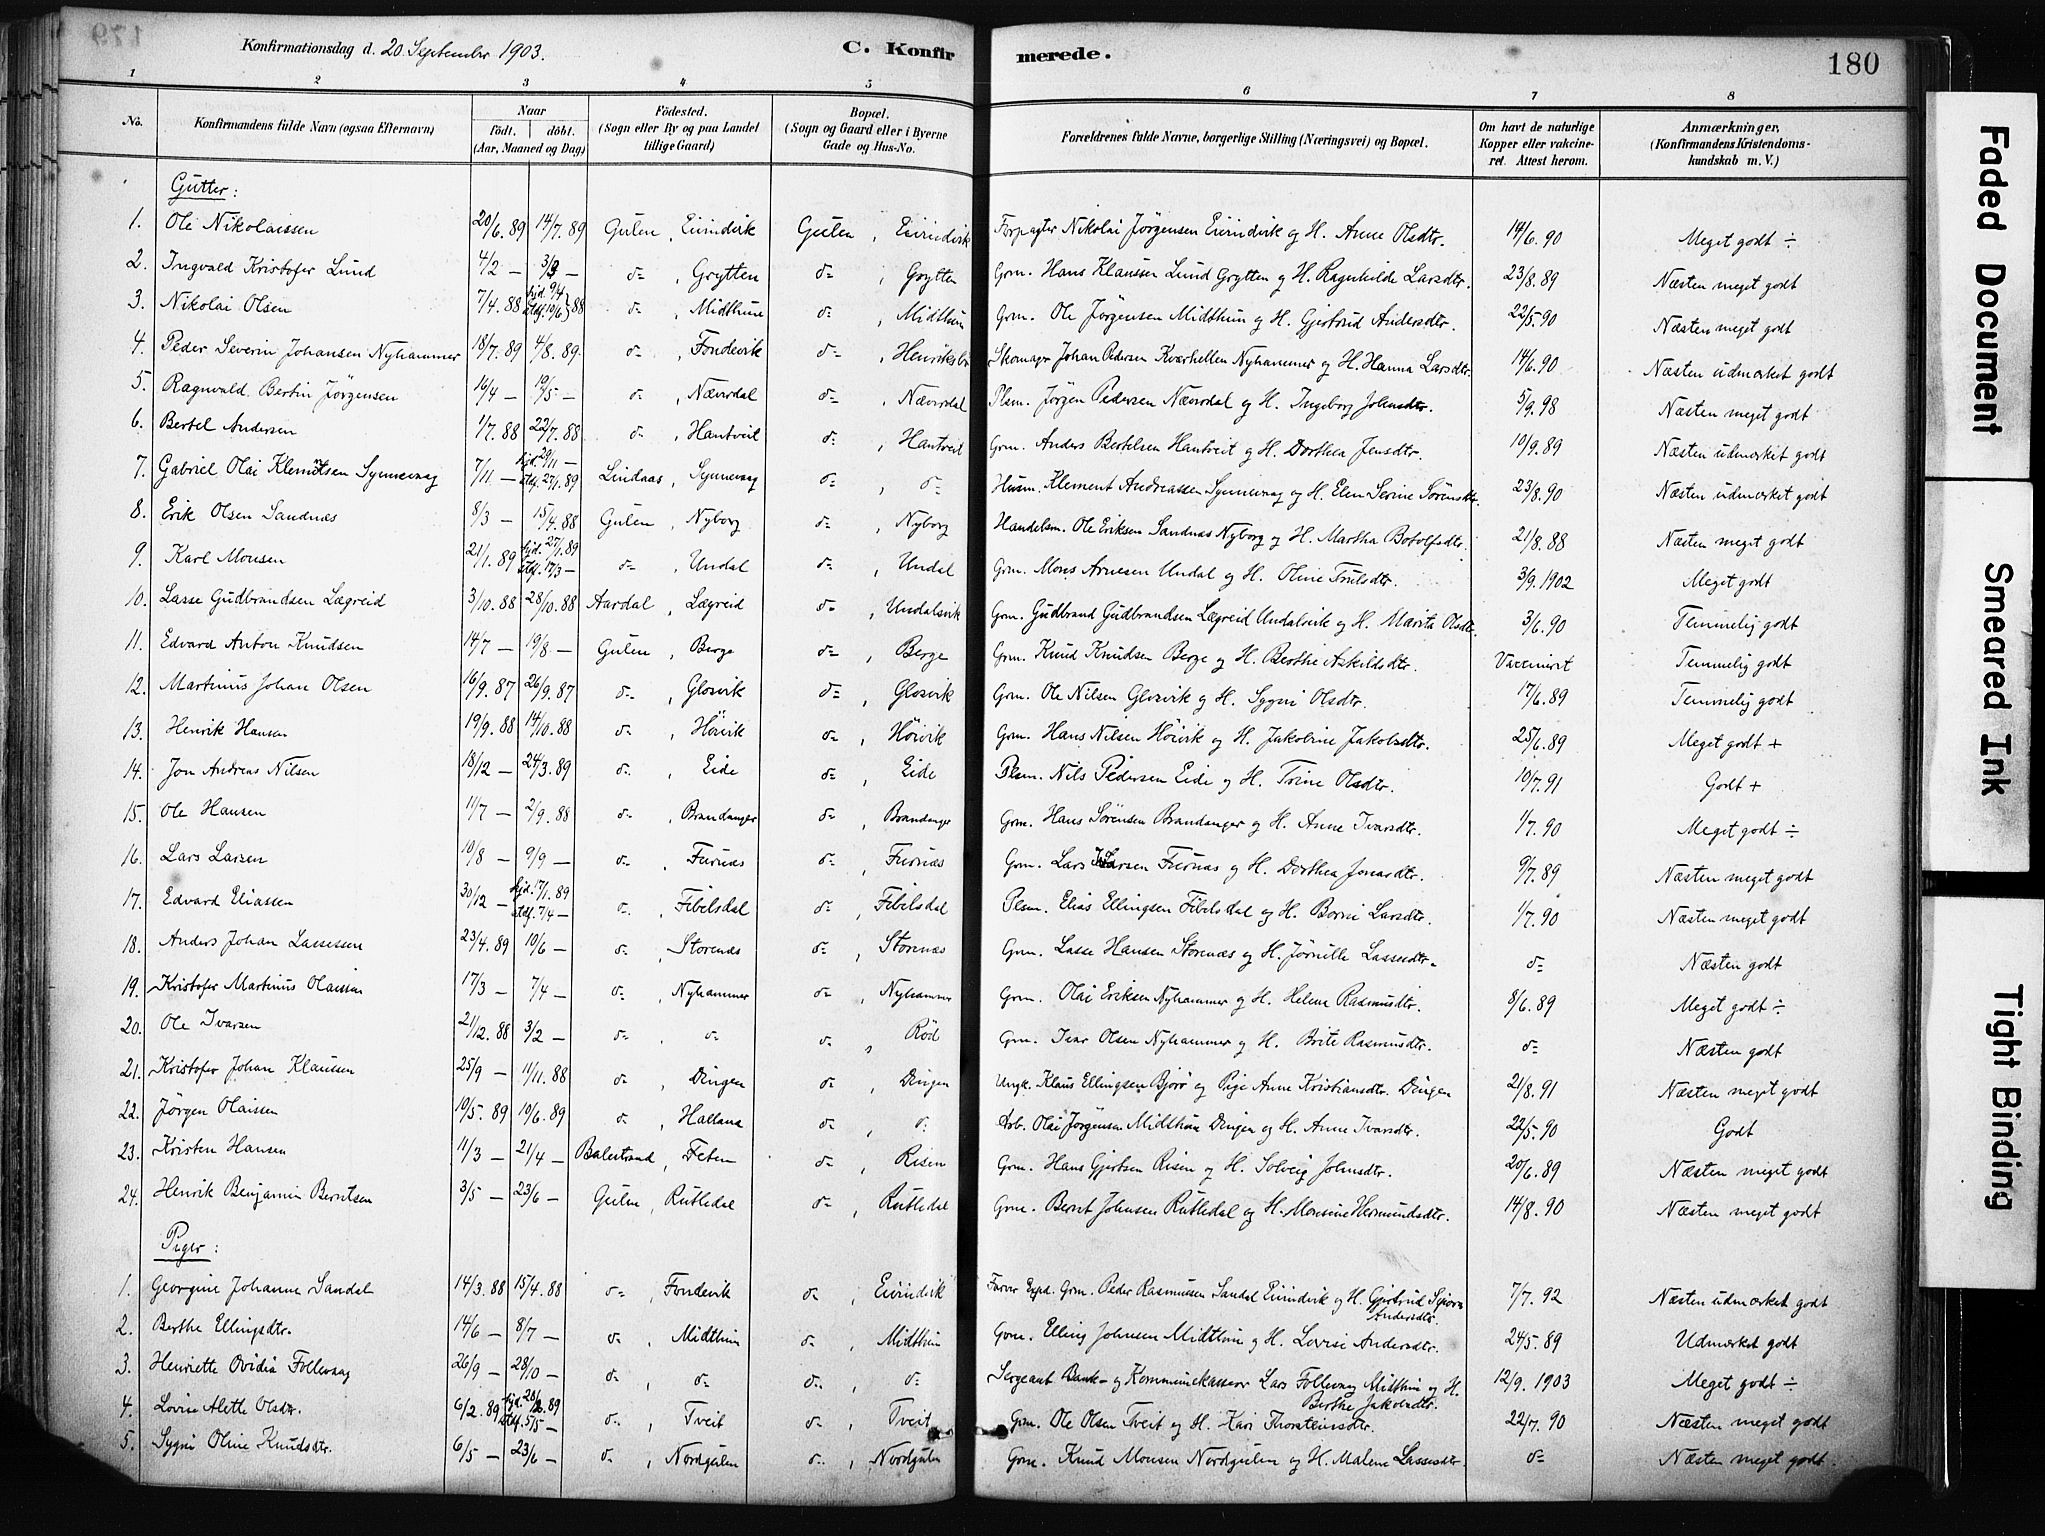 179
Konfirmationsdag d. 20. September 1903. C. Konfirmerede. 180
1 2 3 4 5 6 7 8
No. | Konfirmandens fulde Navn (ogsaa Efternavn) | Naar født. døbt. (Aar, Maaned og Dag) | Fødested. (Sogn eller By og paa Landet tillige Gaard) | Bopæl. (Sogn og Gaard eller i Byerne Gade og Hus-No. | Forældrenes fulde Navne, borgerlige Stilling (Næringsvei) og Bopæl. | Om havt de naturlige Kopper eller vakcineret. Attest herom. | Anmærkninger, (Konfirmandens Kristendomskundskab m. V.)
Gutter:
1. Ole Nikolaissen 20/6. 89 14/7. 89 Gulen, Eivindvik Gulen, Eivindvik Forpagter Nikolai Jørgensen Eivindvik og H. Anne Olsdtr. 14/6. 90 Meget godt ÷
2. Ingvald Kristofer Lund 4/2 — 3/3 — do, Grytten do, Grytten Grm. Hans Klaussen Lund Grytten og H. Ragnhilde Larsdtr. 23/8. 89 Næsten meget godt
3. Nikolai Olsen 7/4. 88 hjd. 9/4 stdf. 10/6 } 88 do, Midthun do, Midthun Grm. Ole Jørgensen Midthun og H. Gjertrud Andersdtr. 22/5. 90 Næsten meget godt
4. Peder Severin Johansen Nyhammer 18/7. 89 4/8. 89. do, Fondevik do, Henriksbø Skomager Johan Pedersen Kværhellen Nyhammer og H. Hanna Larsdtr. 14/6. 90 Næsten udmærket godt
5. Ragnvald Bertin Jørgensen 16/4 — 19/5 — do, Nævrdal do, Nævrdal Plsm. Jørgen Pedersen Nævrdal og H. Ingeborg Johnsdtr. 5/9. 98 Næsten meget godt
6. Bertel Andersen 1/7. 88 22/7. 88 do, Hantveit do, Hantveit Grm. Anders Bertelsen Hantveit og H. Dorthea Jensdtr. 10/9. 89 Næsten udmærket godt
7. Gabriel Olai Klemetsen Synnevaag 7/11. — hjd. 29/11 — stdf. 27/1. 89 Lindaas, Synnevaag do, do Husm. Klement Andreassen Synnevaag og H. Elen Serine Sørensdtr. 23/8. 90 Næsten udmærket godt
8. Erik Olsen Sandnæs 8/3 — 15/4. 88 Gulen, Nyborg do, Nyborg Handelsm. Ole Eriksen Sandnæs Nyborg og H. Martha Botolfsdtr. 21/8. 88 Næsten meget godt
9. Karl Monsen 21/1. 89 hjd. 27/1. 89 stdf. 17/3 — do, Undal do, Undal Grm. Mons Arnesen Undal og H. Oline Trulsdtr. 3/9. 1902 Meget godt
10. Lasse Gudbrandsen Lægreid 3/10. 88 28/10. 88 Aardal, Lægreid do, Undalsvik Grm. Gudbrand Gudbrandsen Lægreid Undalsvik og H. Marita Olsdtr. 3/6. 90 Temmelig godt
11. Edvard Anton Knudsen 14/7 — 19/8 — Gulen, Berge do, Berge Grm. Knud Knudsen Berge og H. Berthe Askildsdtr. Vaccineret Temmelig godt
12. Martinus Johan Olsen 16/9. 87 26/9. 87 do, Glosvik do, Glosvik Grm. Ole Nilsen Glosvik og H. Sygni Olsdtr. 17/6. 89 Temmelig godt
13. Henrik Hansen 19/9. 88 14/10. 88 do, Høivik do, Høivik Grm. Hans Nilsen Høivik og H. Jakobine Jakobsdtr. 25/6. 89 Meget godt +
14. Jon Andreas Nilsen 18/12 — 24/3. 89 do, Eide do, Eide Plsm. Nils Pedersen Eide og H. Trine Olsdtr. 10/7. 91 Godt +
15. Ole Hansen 11/7 — 2/9. 88 do, Brandanger do, Brandanger Grm. Hans Sørensen Brandanger og H. Anne Ivarsdtr. 1/7. 90 Meget godt ÷
16. Lars Larsen 10/8 — 9/9 — do, Furnæs do, Furnæs Grm. Lars Larsen Furnæs og H. Dorthea Jonardtr. 9/7. 89 Næsten meget godt
17. Edvard Eliassen 30/12 — hjd. 17/1. 89 stdf. 7/4 — do, Fibelsdal do, Fibelsdal Plsm. Elias Ellingsen Fibelsdal og H. Borni Larsdtr. 1/7. 90 Næsten meget godt
18. Anders Johan Lassesen 23/4. 89 10/6 — do, Storenæs do, Storenæs Grm. Lasse Hansen Storenæs og H. Jørnille Lassesdtr. do Næsten godt
19. Kristofer Martinus Olaissen 17/3 — 7/4 — do, Nyhammer do, Nyhammer Grm. Olai Eriksen Nyhammer og H. Helene Rasmusdtr. 8/6. 89 Meget godt ÷
20. Ole Ivarsen 21/12. 88 3/2 — do, do do, Rød Grm. Ivar Olsen Nyhammer og H. Brite Rasmusdtr. do Næsten godt
21. Kristofer Johan Klaussen 25/9 — 11/11. 88 do, Dingen do, Dingen Ungk. Klaus Ellingsen Bjørø og Pige Anne Kristiansdtr. Dingen 21/8. 91 Næsten meget godt
22. Jørgen Olaissen 10/5. 89 10/6. 89 do, Halland do, do Arb. Olai Jørgensen Midthun Dingen og H. Anne Ivarsdtr. 22/5. 90 Godt
23. Kristen Hansen 11/3 — 21/4 — Balestrand, Feten do, Risen Grm. Hans Gjertsen Risen og H. Solveig Johnsdtr. 20/6. 89 Næsten meget godt
24. Henrik Benjamin Berntsen 3/5 — 23/6 — Gulen, Rutledal do, Rutledal Grm. Bernt Johnsen Rutledal og H. Monsine Hermundsdtr. 14/8. 90 Næsten meget godt
Piger:
1. Georgine Johanne Sandal 14/3. 88 15/4. 88 do, Fondevik do, Eivindvik Grm. Peder Rasmussen Sandal Eivindvik og H. Gjertrud Andersdtr. 7/7. 92 Næsten udmærket godt
2. Berthe Ellingsdtr. 14/6 — 8/7 — do, Midthun do, Midthun Grm. Elling Johnsen Midthun og H. Lovise Andersdtr. 24/5. 89 Udmærket godt
3. Henriette Ovidia Follevaag 26/9 — 28/10 — do, do do, do Sergeant Bank- og Kommunekasserer Lars Follevaag Midthun og H. Berthe Jakobsdtr. 12/9. 1903 Meget godt ÷
4. Lovise Alette Olsdtr. 6/2. 89 hjd. 28/2. 89 stdf. 5/5 — do, Tveit do, Tveit Grm. Ole Olsen Tveit og H. Kari Thorsteinsdtr. 22/7. 90 Næsten meget godt
5. Sygni Oline Knudsdtr. 6/5 — 23/6 — do, Nordgulen do, Nordgulen Grm. Knud Monsen Nordgulen og H. Malene Lassesdtr. do Næsten meget godt
Faded Document
Smeared Ink
Tight Binding